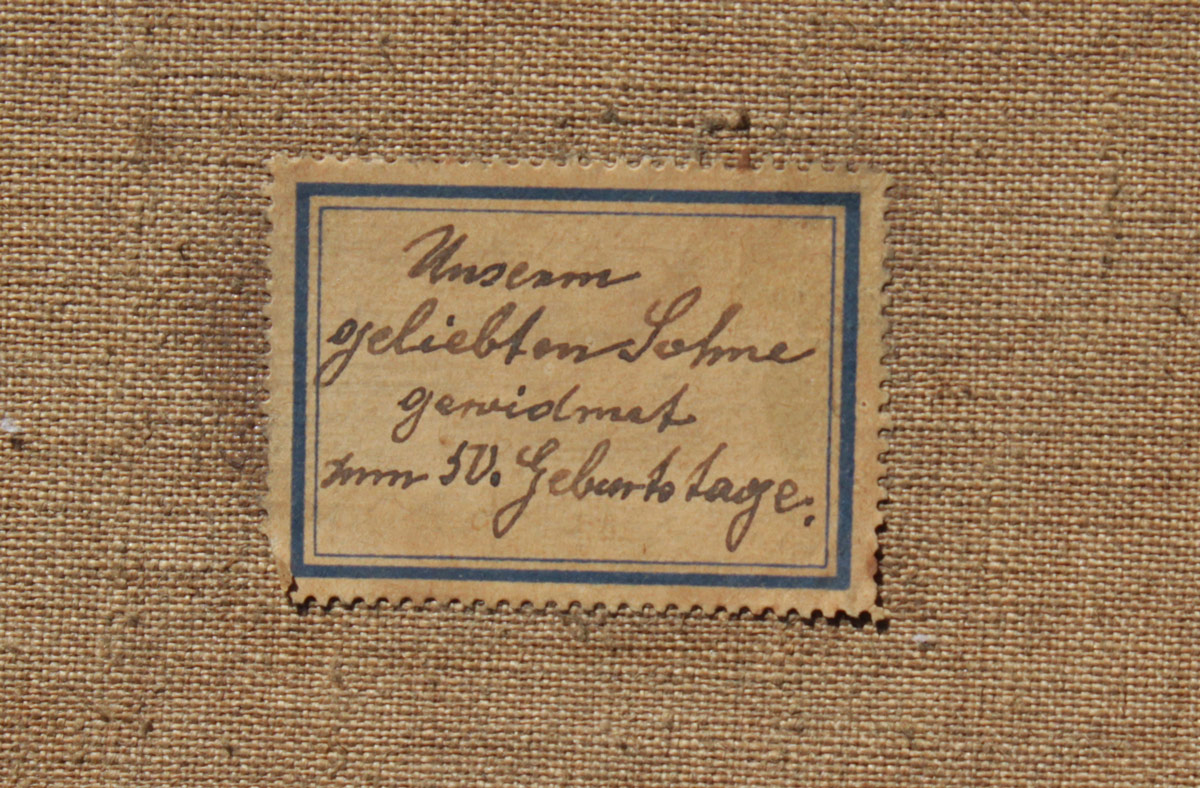 Unserm
geliebten Sohne
gewidmet
zum 50. Geburtstage.